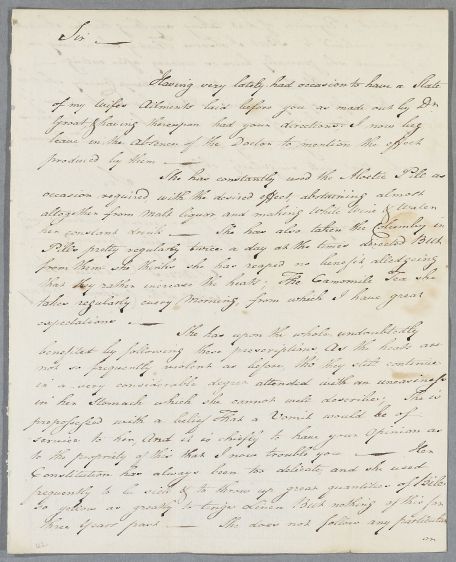 Sir —
Having very lately had occasion to have a State
of my wifes Ailments laid before you as made out by Dr.
Groat & having thereupon had your directions I now beg
leave in the Absence of the Doctor to mention the effect
produced by them —
She has constantly used the Aloetic Pill as
occasion required with the desired effect, abstaining almost
altogether from Malt liquor and making White Wine & Water
her constant drink — She has also taken the Columby in
Pills pretty regularly twice a day at the times directed But
from them she thinks she has reaped no benefit, alledgeing
that they rather increase the heats; The Camomile Tea she
takes regularly every Morning, from which I have great
expectations —
She has upon the whole undoubtedly
benefited by following those prescriptions As the heats are
not so frequently violent as before, tho they still continue
in a very considerable degree attended with an uneasiness
in her Stomach which she cannot well describe; She is
prepossessed with a belief That a Vomit would be of
service to her, And it is chiefly to have your Opinion as
to the propriety of this that I now trouble you — Her
Constitution has always been too delicate and she used
frequently to be sick & to throw up great quantities of Bile
so yellow as greatly to tinge linen But nothing of this for
three years past — She does not follow any particular
on